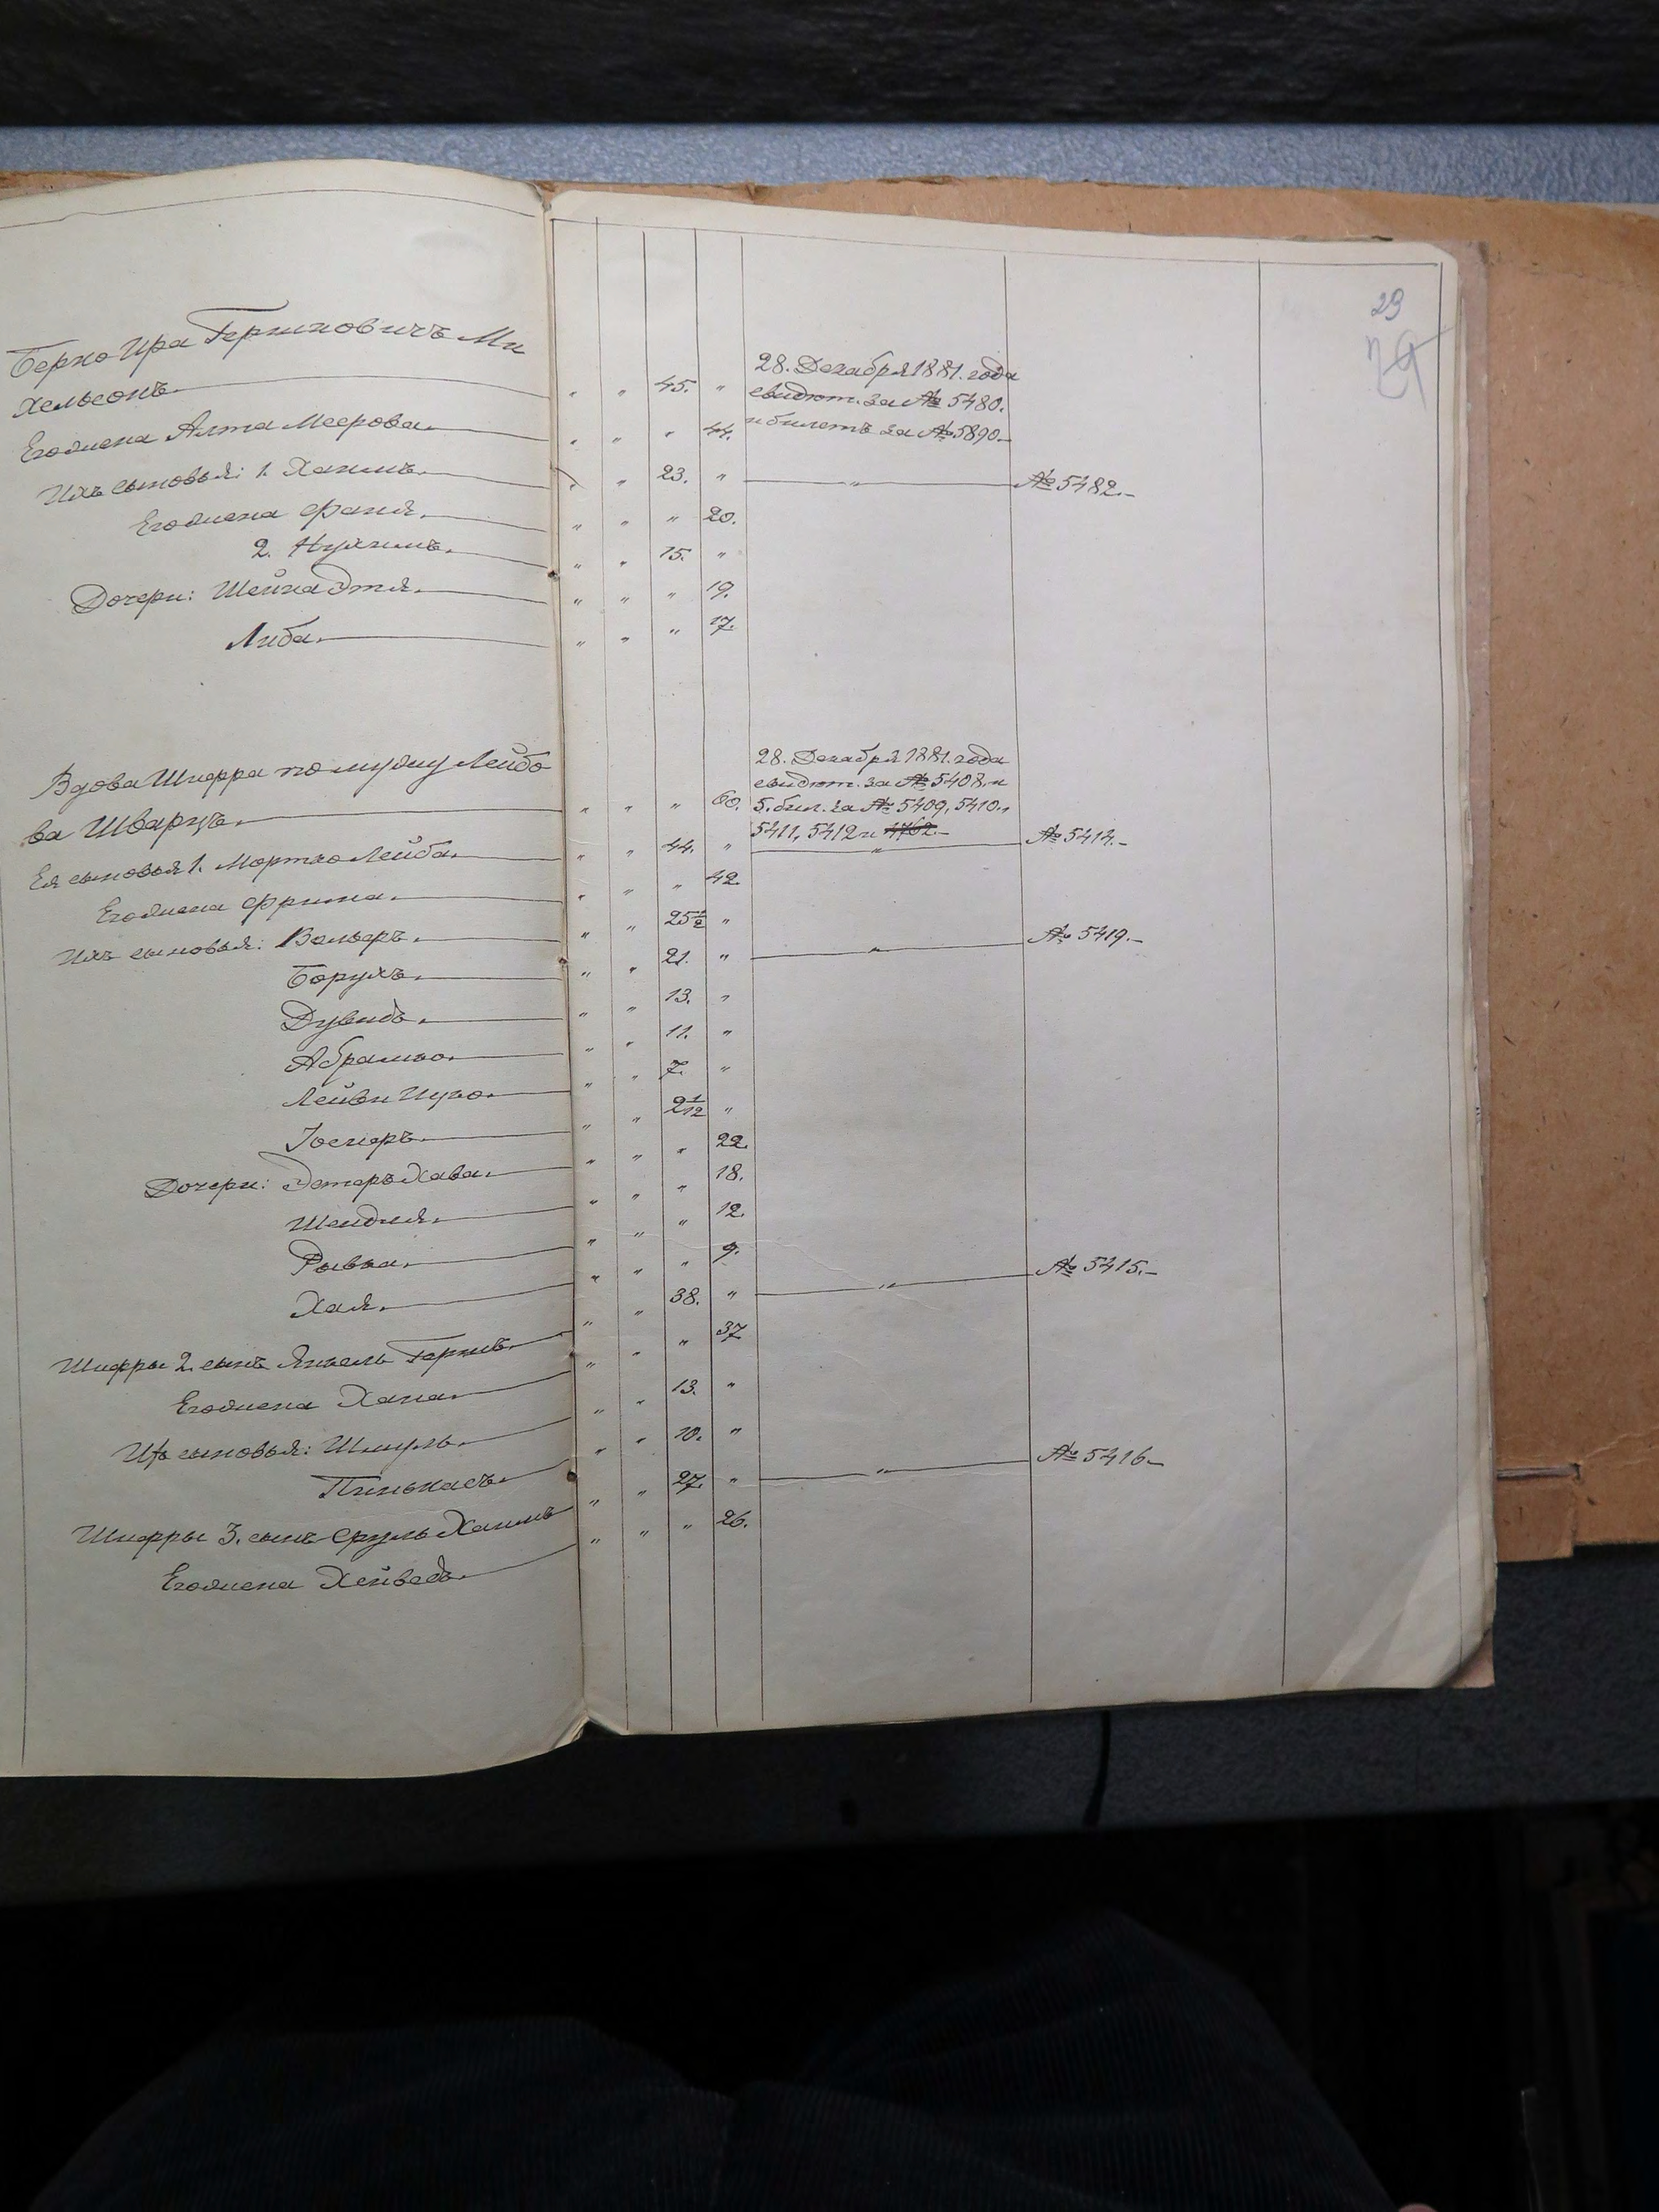 29
29
Берко Ира Гершковичъ Ми
хельсонъ. " " 45. " 28. Декабря 1881. года свидѣт. за № 5480.
Его жена Алта Меерова. " " " 44. и билетъ за № 5890.
Ихъ сыновья: 1. Хаимъ. " " 23. " " № 5482.
Его жена Фаня. " " " 20.
2. Нухимъ. " " 15. "
Дочери: Шейна Этля. " " " 19.
Либа. " " " 17.
Вдова Шифра по мужу Лейбо 28. Декабря 1881. года
свидѣт. за № 5408. и
ва Шварцъ. " " " 60. 5. бил. за № 5409, 5410.,
5411, 5412 и 4762.
Ея сыновья 1. Мортко Лейба. " " 44. " " № 5414.
Его жена Фрима. " " " 42.
Ихъ сыновья: Вольфъ. " " 25½ " " № 5419.
Борухъ. " " 21. "
Дувидъ. " " 13. "
Абрамко. " " 11. "
Лейви Ицко. " " 7. "
Іосифъ. " " 2 1/12 "
Дочери: Эстеръ Хава. " " " 22.
Шендля. " " " 18.
Рывка. " " " 12.
Хая. " " " 9.
Шифры 2. сынъ Янкель Гершъ. " " 38. " " № 5415.
Его жена Хана. " " " 37
Ихъ сыновья: Шмуль. " " 13. "
Пинькасъ. " " 10. "
Шифры 3. сынъ Сруль Хаимъ " " 27. " " № 5416.
Его жена Хейведъ. " " " 26.